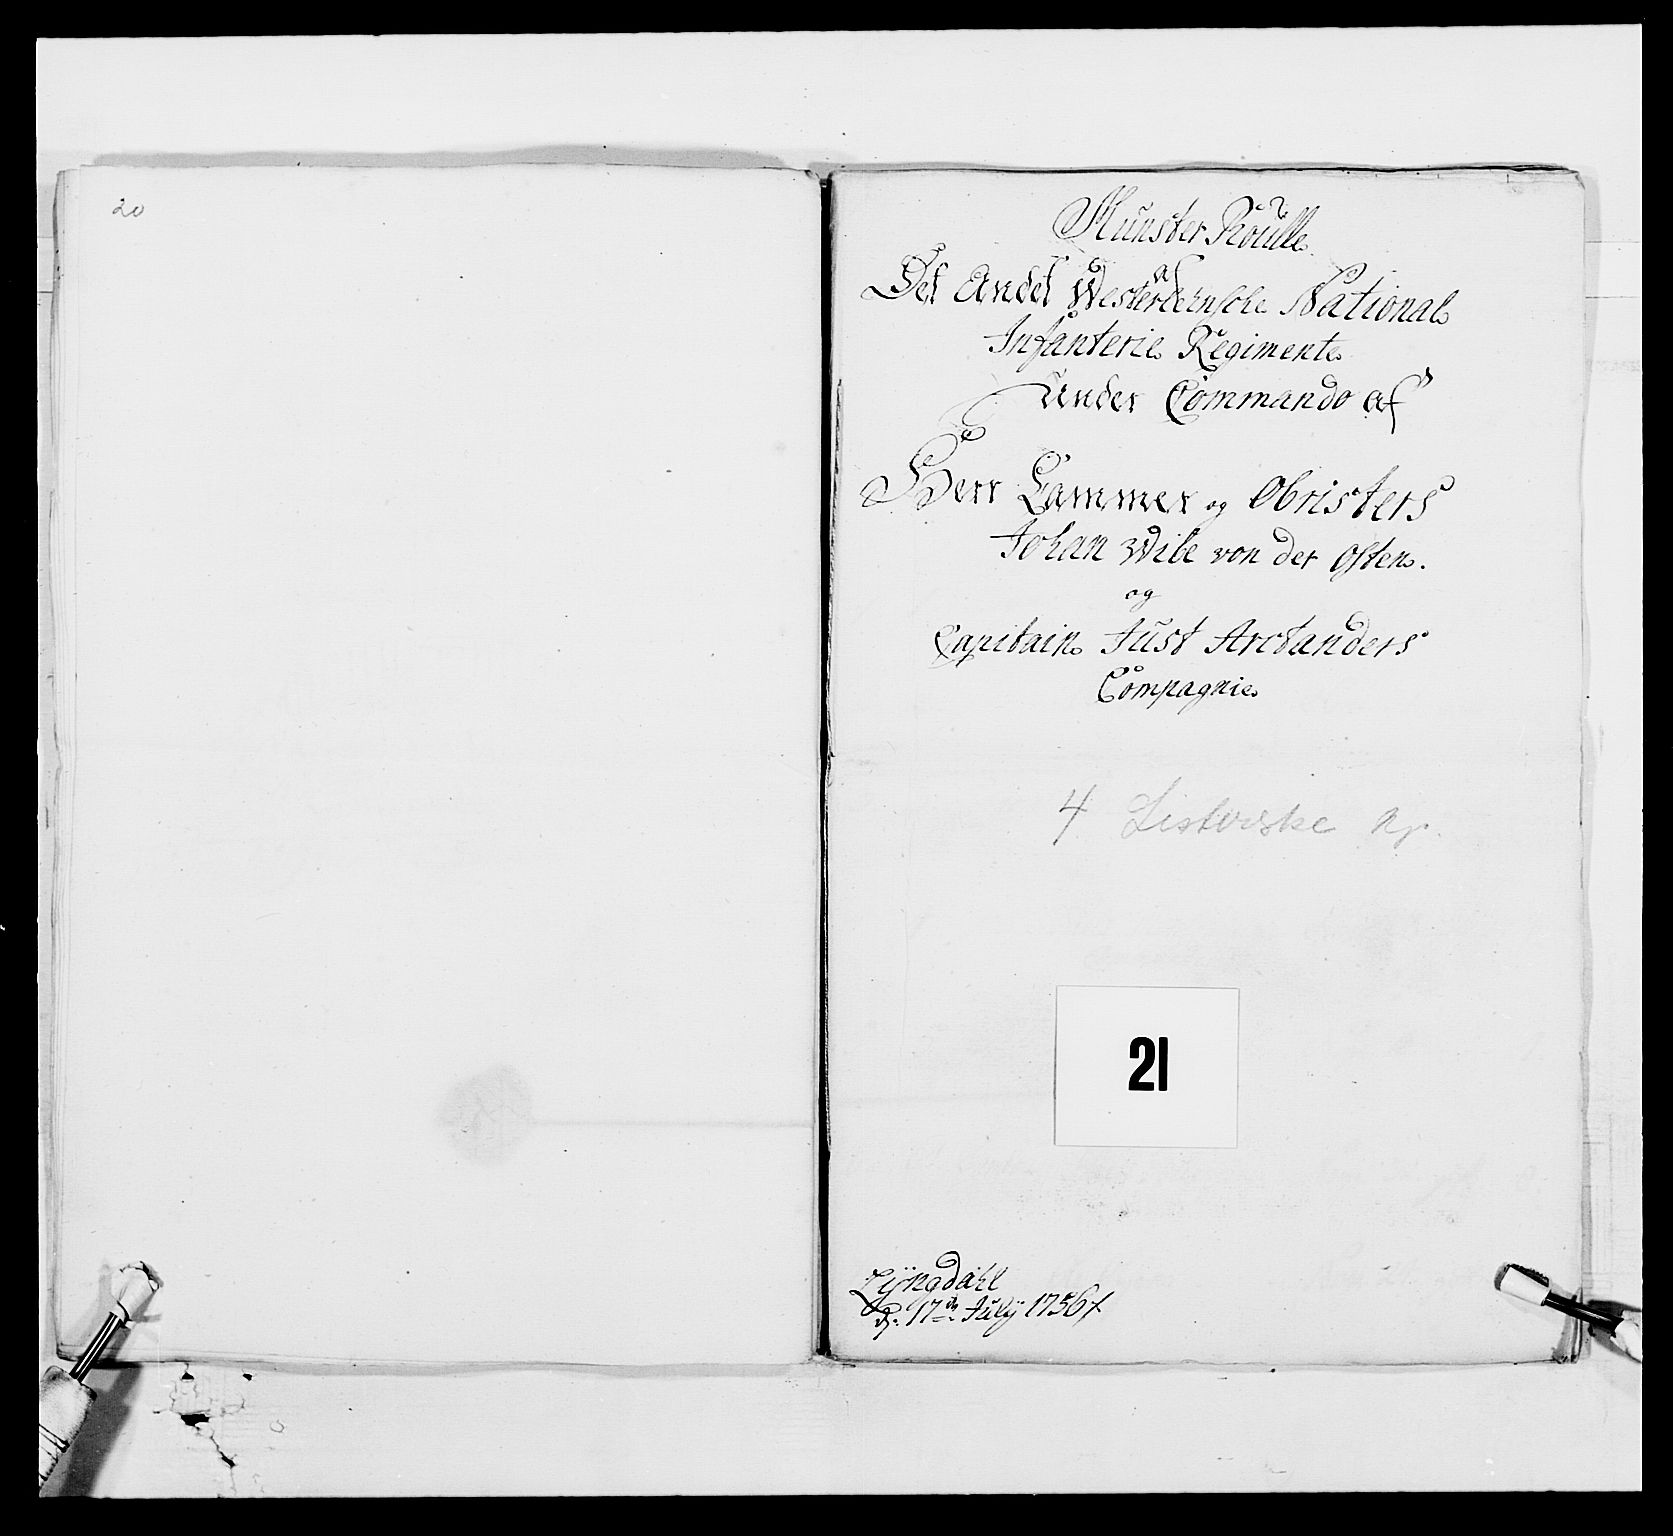 20
Munster Roulle
af
Det Andet Westerlehnsche National
Infanterie Regimente
under Commando af
Herr Cammer og Obristers
Johan Wibe von der Osten.
og
Capitain Just Arctanders
Compagnie
4 Listerske kp.
21
Lÿngdahl
d: 17de Julÿ 1756